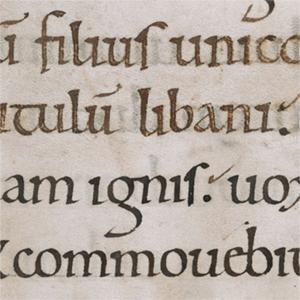 ū filius unico
itulū libani:
am ignis: uox
x commouebiu